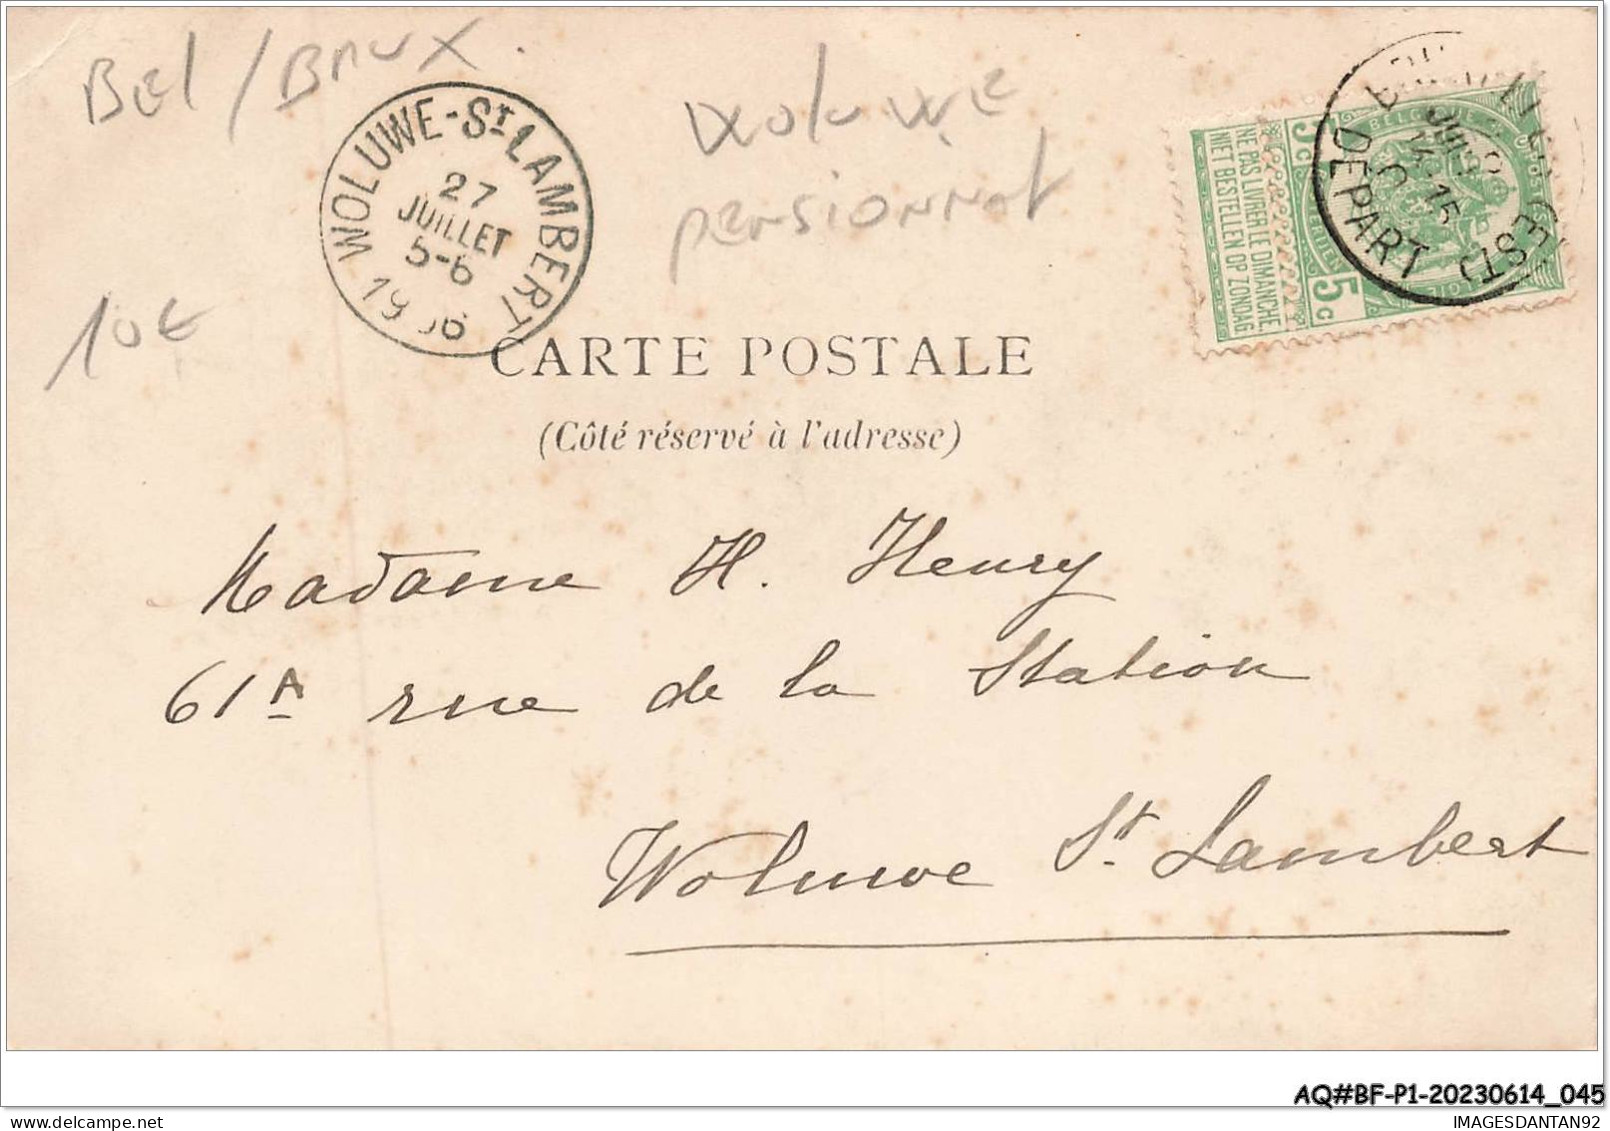 Bel / Brux.
Woluwe
pensionnat
10€
WOLUWE-ST LAMBERT
27
JUILLET
5-6
1906
NE PAS LIVRER LE DIMANCHE.
NIET BESTELLEN OP ZONDAG
5c
5c
BELGIQUE
DEPART
CARTE POSTALE
(Côté réservé à l'adresse)
Madame H. Henry
61A rue de la Station
Woluwe St. Lambert
AQ#BF-P1-20230614_045
IMAGESDANTAN92